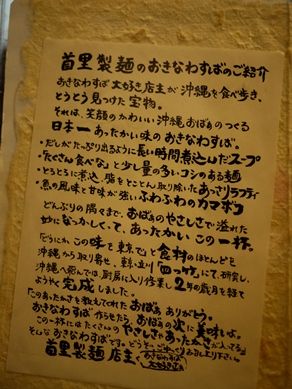 首里製麺のおきなわすばのご紹介
おきなわすば大好き店主が沖縄を食べ歩き、
とうとう見つけた宝物。
それは、笑顔のかわいい沖縄おばぁのつくる
日本一あったかい味のおきなわすば。
・だしがたっぷり出るように長い時間煮込んだスープ
・「たくさん食べな」と少し量の多いコシのある麺
・とろとろに煮込、脂をとことん取り除いたあっさりラフティ
・魚の風味と甘味が強いふわふわのカマボコ
どんぶりの隅々まで、おばぁのやさしさで溢れた
妙になつかしくって、あったかいこの一杯。
どうにかこの味を東京でと食材のほとんどを
沖縄から取り寄せ、
沖縄へ飛んでは厨房に入り作業し2年の歳月を経て
ようやく完成しました。
「このあったかさを教えてくれたおばぁありがとう。
おきなわすば作らせたら、おばぁの次に美味いよ。
この一杯にはたくさんのやさしさとあったかさが入ってるよ
そんなおきなわすばです。どうぞ
首里製麺店主 おきなわすば大好き